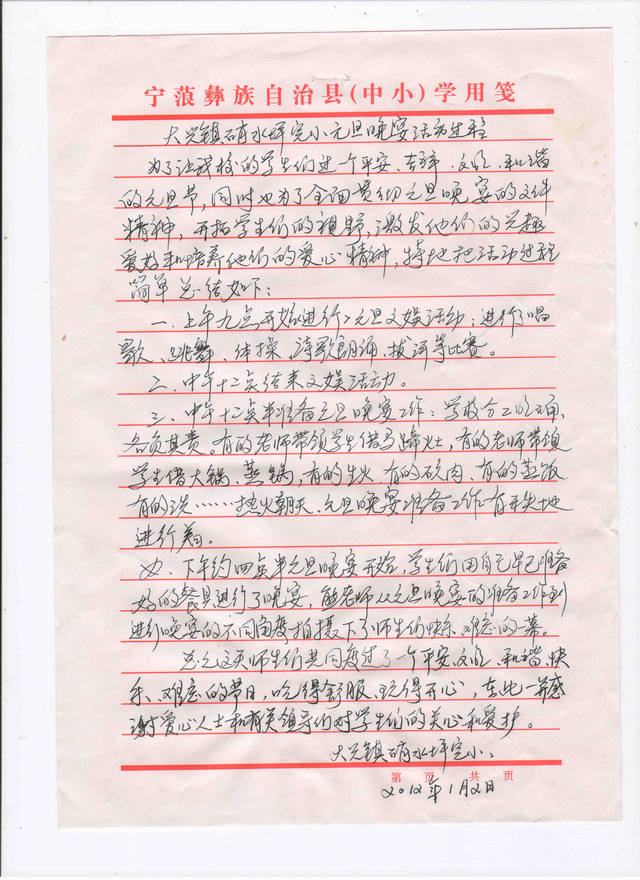 宁蒗彝族自治县(中小)学用笺
大兴镇硝水坪完小元旦晚宴活动过程
为了让我校的学生们过一个平安、吉祥、文明、和谐
的元旦节,同时也为了全面贯彻元旦晚宴的文件
精神,开拓学生们的视野,激发他们的兴趣
爱好和培养他们的爱心精神,特地把活动过程
简单总结如下:
一、上午九点开始进行元旦文娱活动:进行了唱
歌、跳舞、体操、诗歌朗诵、拔河等比赛。
二、中午十二点结束文娱活动。
三、中午十二点半准备元旦晚宴工作:学校分工明确,
各负其责。有的老师带领学生借马蹄灶,有的老师带领
学生借大锅、蒸锅,有的生火、有的砍肉、有的蒸饭、
有的洗……热火朝天、元旦晚宴准备工作有开头地
进行着。
四、下午约四点半元旦晚宴开始,学生们用自己早已准备
好的餐具进行了晚宴,熊老师从元旦晚宴的准备工作到
进行晚宴的不同角度拍摄下了师生们快乐、难忘的一幕。
总之这天师生们共同度过了一个平安、文明、和谐、快
乐、难忘的节日,吃得舒服、玩得开心,在此一并感
谢爱心人士和有关领导们对学生们的关心和爱护。
大兴镇硝水坪完小
第 页 共 页
2012年1月2日